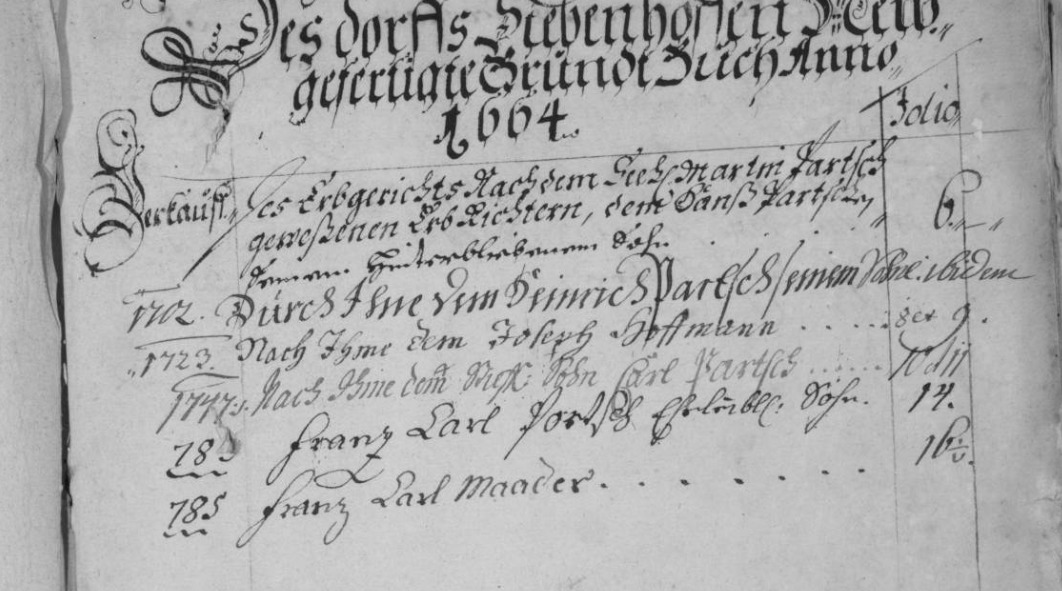 Des dorffs Siebenhoffen New,,
gefertigte Grundt Buch Anno,,
1664.
Folio,,
Verkauff,, Des Erbgerichts Nach dem Seel: Martin Partsch
geweßenen Erb Richtern, dem Hanß Partschen,, 6.,,
Seinem Hinterbliebenem Sohn . . . .
1702. Durch Ihne dem Heinrich Partsch seinem Sohne. ibidem
,,1723. Nach Ihme dem Joseph Hoffmann . . . . . 9.
1747. Nach Ihme dem Sohn Carl Partsch . . . . . .
Franz Carl Partsch Ehleibl: Sohn. 14.
785 Franz Carl Maader . . . . . . . 16